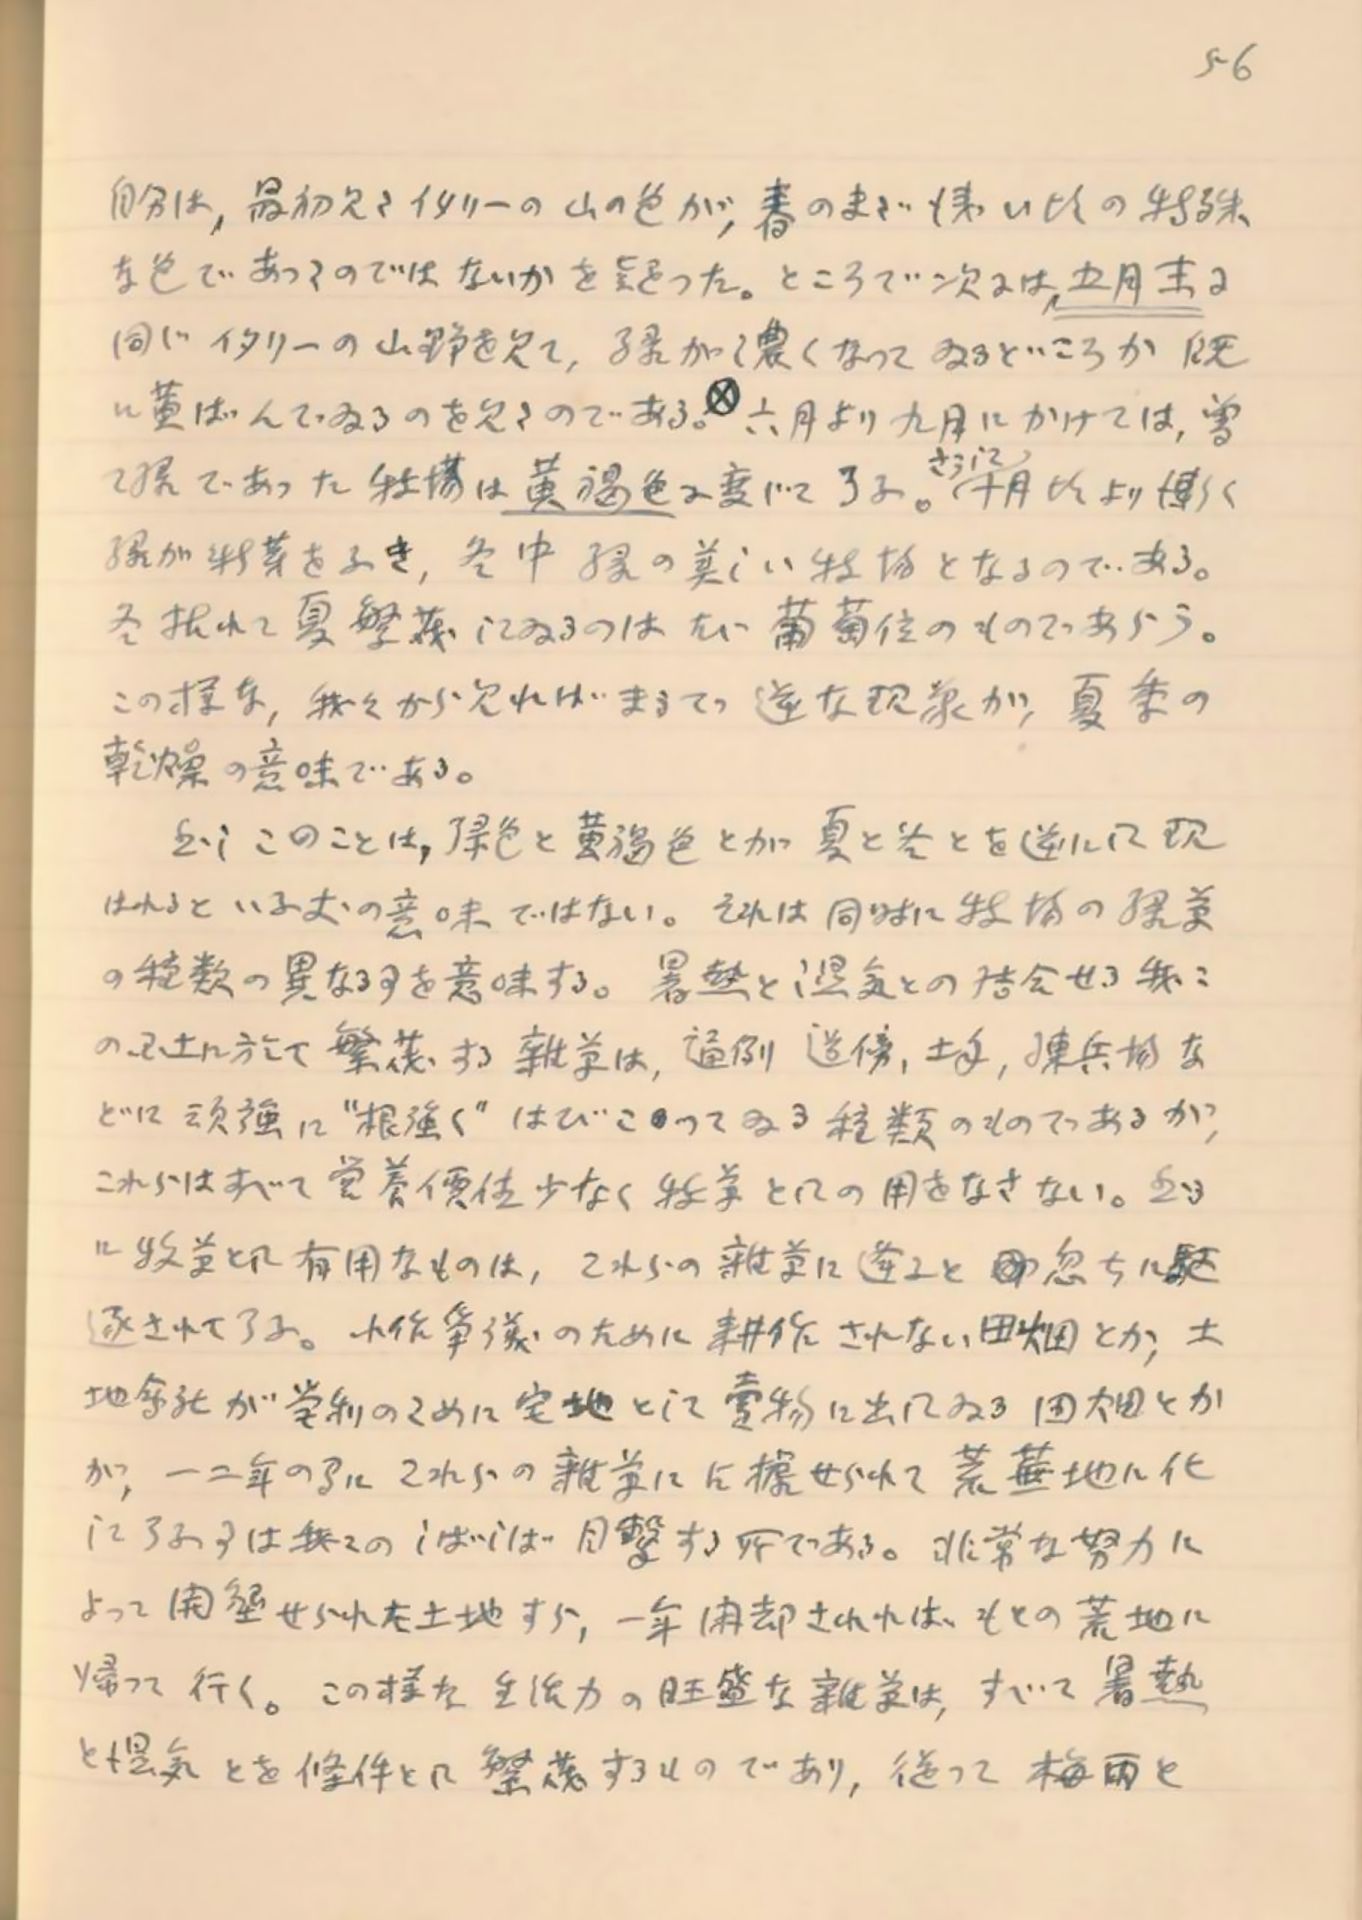 56
自分は，最初見たイタリーの山の色が，春のまだ浅い頃の特殊
な色であったのではないかを疑った。ところで次には，五月末に
同じイタリーの山野を見て，緑が濃くなってゐるどころか既
に黄ばんでゐるのを見たのである。⊗六月より九月にかけては，曾
て緑であった牧場は黄褐色に変じて了ふ。さうして十月頃より漸く
緑が新芽をふき，冬中緑の美しい牧場となるのである。
冬枯れて夏繁茂してゐるのはたゞ葡萄位のものであらう。
この様な，我々から見ればまるで逆な現象が，夏季の
乾燥の意味である。
然しこのことは，緑色と黄褐色とが夏と冬とを逆にして現
はれるといふ丈の意味ではない。それは同時に牧場の緑草
の種類の異なる事を意味する。暑熱と湿気との結合せる我々
の風土に於て繁茂する雑草は，通例道傍，土手，練兵場な
どに頑強に"根強く"はびこってゐる種類のものであるが，
これらはすべて営養価値少なく牧草としての用をなさない。然る
に牧草として有用なものは，これらの雑草に逢ふと忽ちに駆
逐されて了ふ。小作争議のために耕作されない田畑とか，土
地会社が営利のために宅地として売物に出してゐる田畑とか
が，一二年の間にこれらの雑草に占拠せられて荒蕪地に化
して了ふ事は我々のしばしば目撃する所である。非常な努力に
よって開墾せられた土地すら，一年閑却されればもとの荒地に
帰って行く。この様な生活力の旺盛な雑草は，すべて暑熱
と湿気とを條件として繁茂するものであり，従って梅雨と